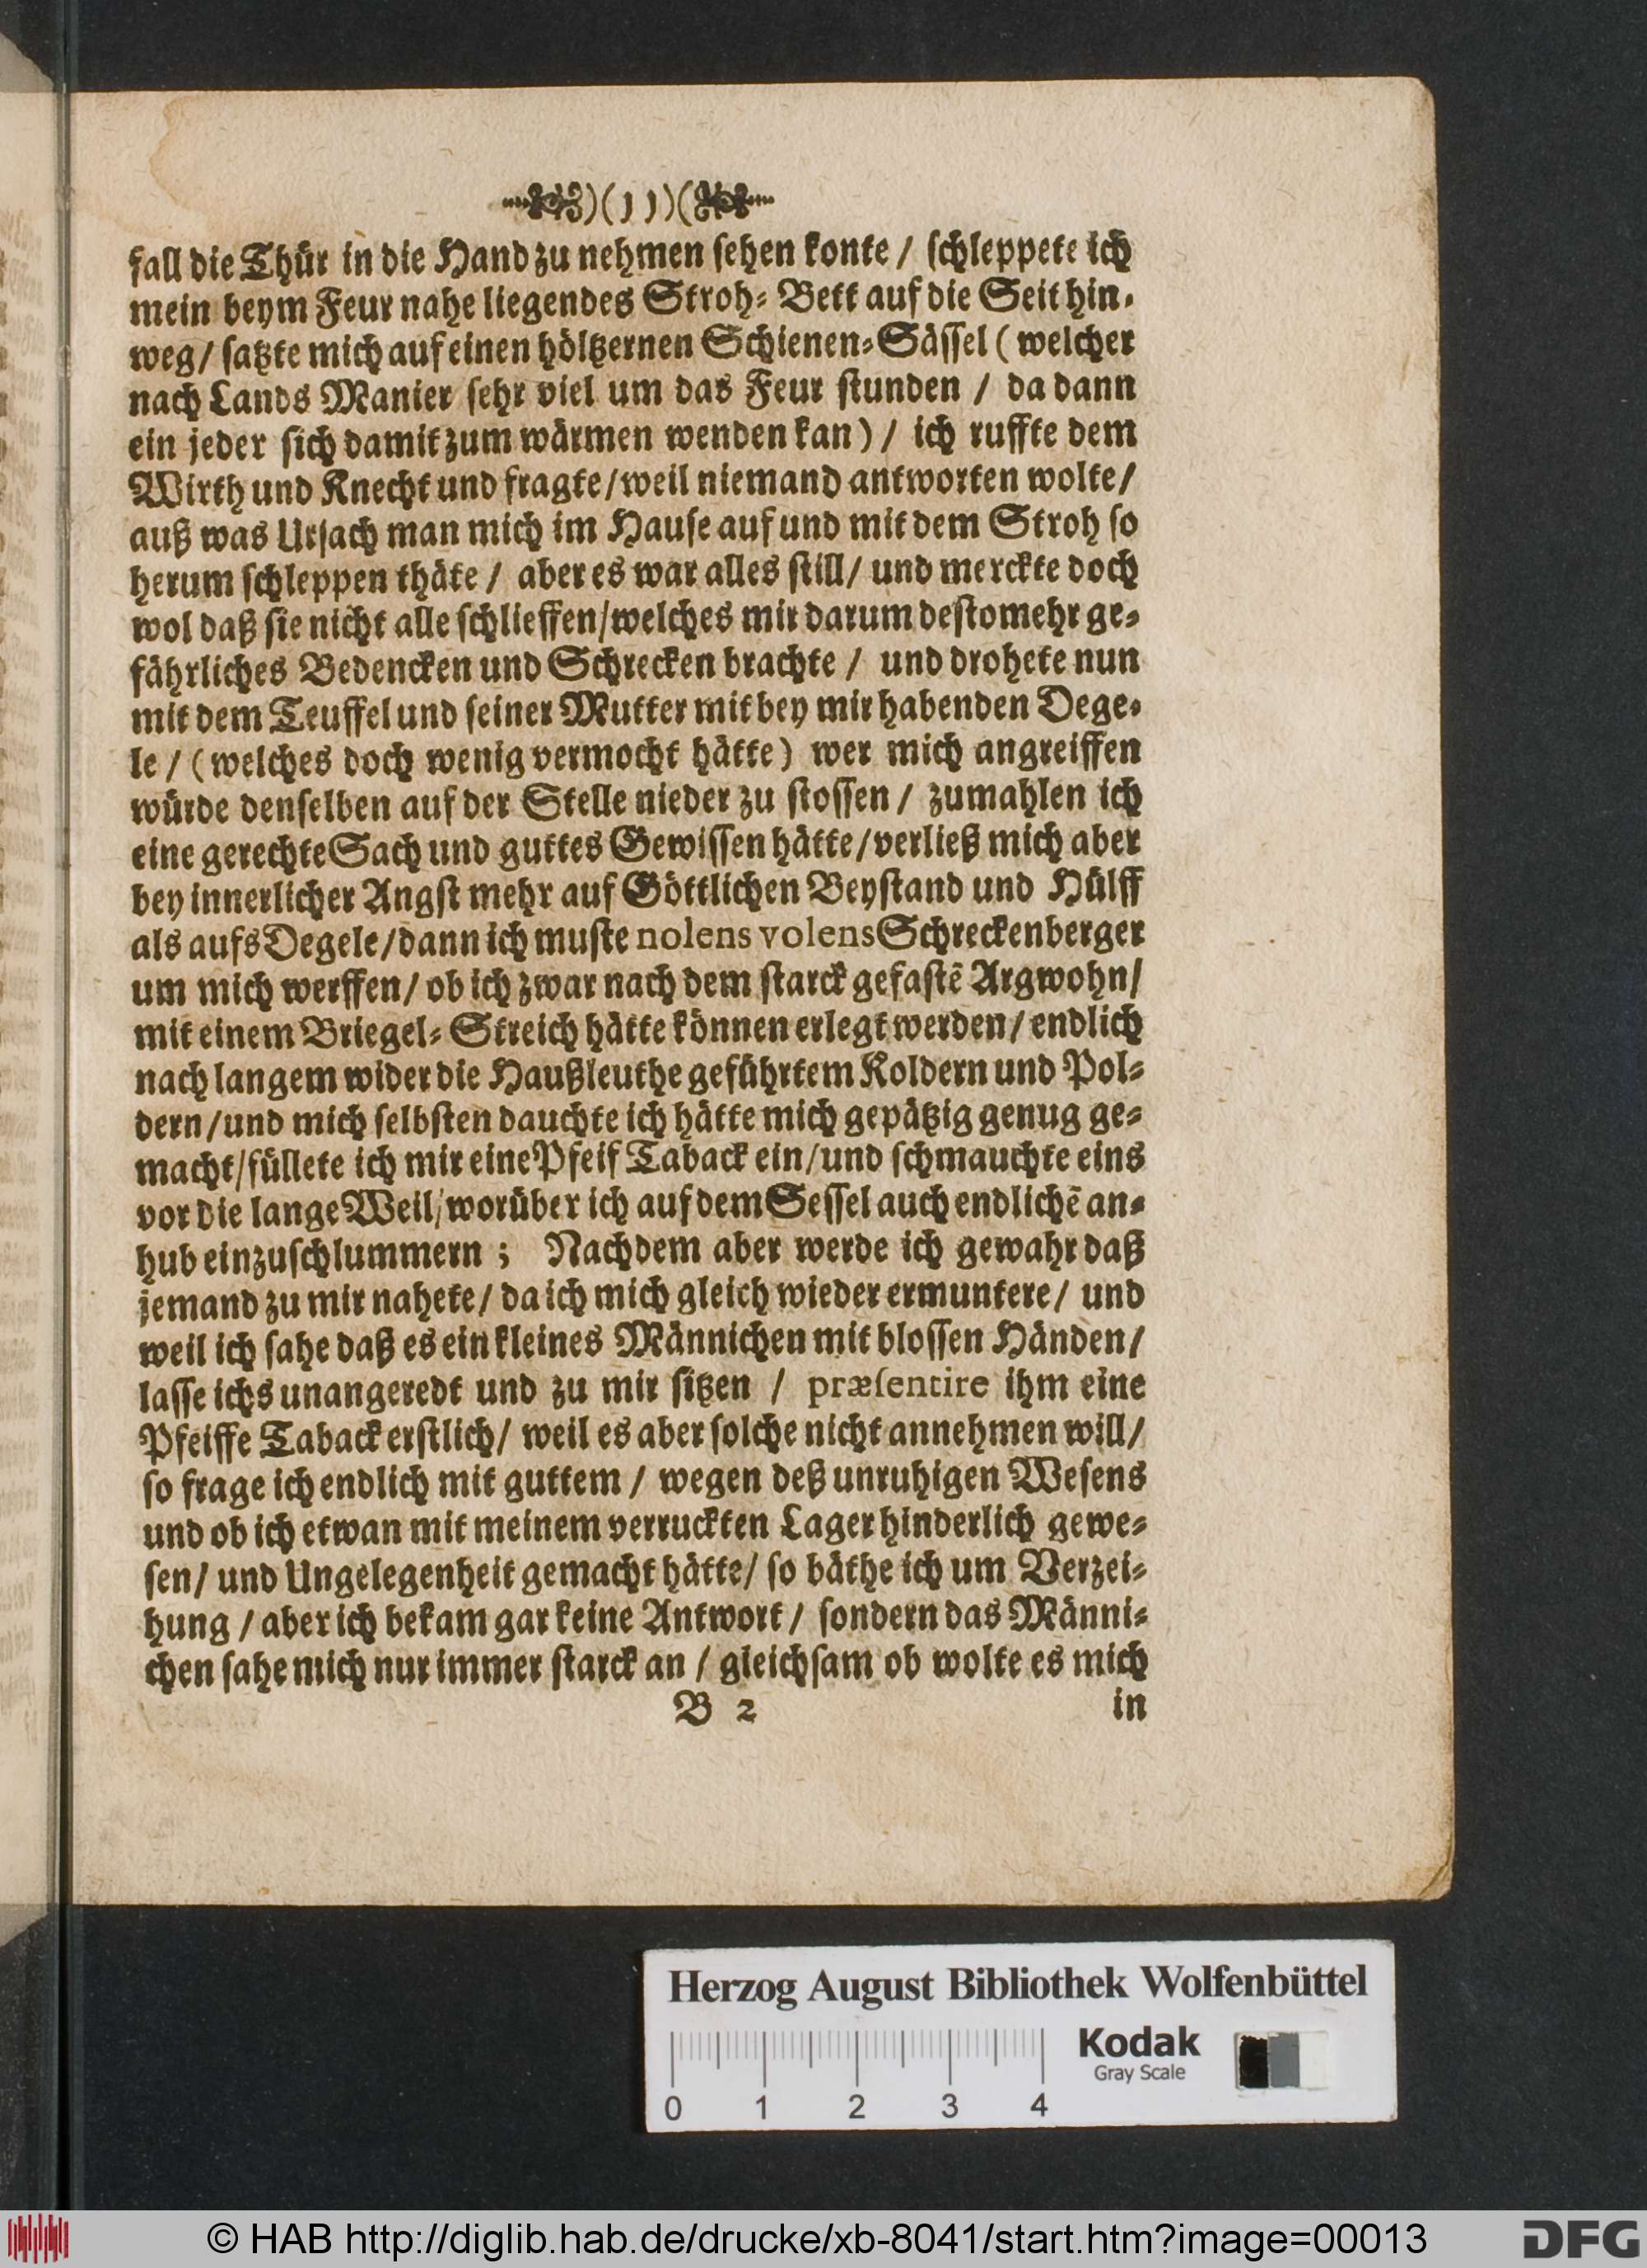 )(11)(
fall die Thür in die Hand zu nehmen sehen konte / schleppete ich
mein beym Feur nahe liegendes Stroh-Bett auf die Seit hin-
weg / satzte mich auf einen höltzernen Schienen-Sässel ( welcher
nach Lands Manier sehr viel um das Feur stunden / da dann
ein jeder sich damit zum wärmen wenden kan ) / ich ruffte dem
Wirth und Knecht und fragte / weil niemand antworten wolte /
auß was Ursach man mich im Hause auf und mit dem Stroh so
herum schleppen thäte / aber es war alles still / und merckte doch
wol daß sie nicht alle schlieffen / welches mir darum destomehr ge-
fährliches Bedencken und Schrecken brachte / und drohete nun
mit dem Teuffel und seiner Mutter mit bey mir habenden Dege-
le / ( welches doch wenig vermocht hätte ) wer mich angreiffen
würde denselben auf der Stelle nieder zu stossen / zumahlen ich
eine gerechte Sach und guttes Gewissen hätte / verließ mich aber
bey innerlicher Angst mehr auf Göttlichen Beystand und Hülff
als aufs Degele / dann ich muste nolens volens Schreckenberger
um mich werffen / ob ich zwar nach dem starck gefastẽ Argwohn /
mit einem Briegel-Streich hätte können erlegt werden / endlich
nach langem wider die Haußleuthe geführtem Koldern und Pol-
dern / und mich selbsten dauchte ich hätte mich gepätzig genug ge-
macht / füllete ich mir eine Pfeif Taback ein / und schmauchte eins
vor die lange Weil / worüber ich auf dem Sessel auch endlichẽ an-
hub einzuschlummern ; Nachdem aber werde ich gewahr daß
jemand zu mir nahete / da ich mich gleich wieder ermuntere / und
weil ich sahe daß es ein kleines Männichen mit blossen Händen /
lasse ichs unangeredt und zu mir sitzen / præsentire ihm eine
Pfeiffe Taback erstlich / weil es aber solche nicht annehmen will /
so frage ich endlich mit guttem / wegen deß unruhigen Wesens
und ob ich etwan mit meinem verruckten Lager hinderlich gewe-
sen / und Ungelegenheit gemacht hätte / so bäthe ich um Verzei-
hung / aber ich bekam gar keine Antwort / sondern das Männi-
chen sahe mich nur immer starck an / gleichsam ob wolte es mich
B 2 in
Herzog August Bibliothek Wolfenbüttel
Kodak
Gray Scale
0 1 2 3 4
© HAB http://diglib.hab.de/drucke/xb-8041/start.htm?image=00013
DFG